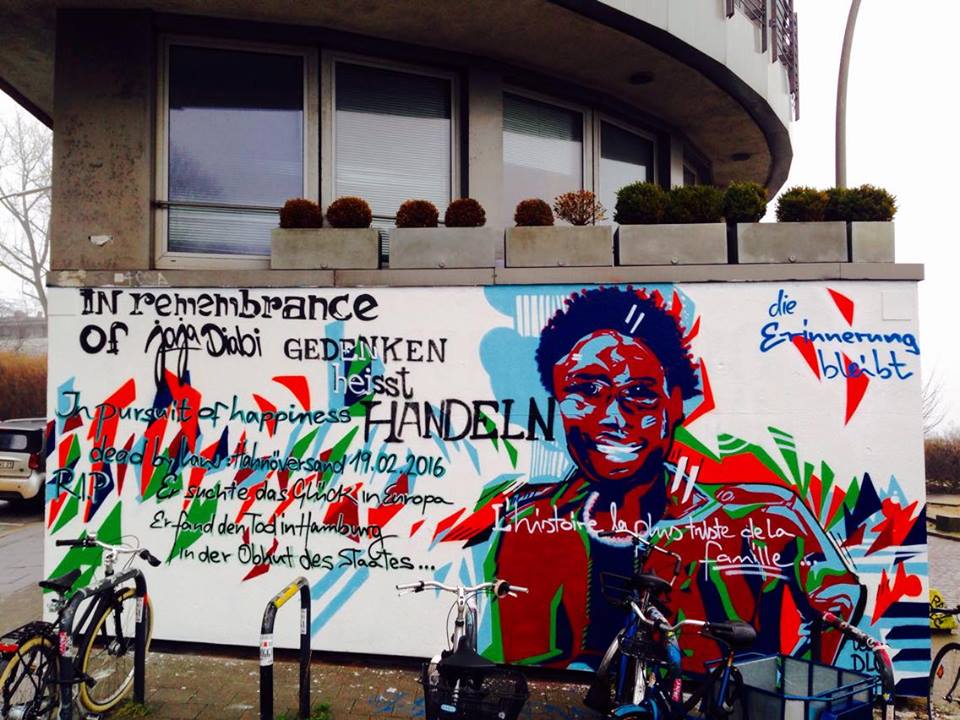 In remembrance
of jaja Diabi
GEDENKEN
heisst
HANDELN
In pursuit of happiness
dead by law: Hahnöversand 19.02.2016
R.I.P
Er suchte das Glück in Europa
Er fand den Tod in Hamburg
in der Obhut des Staates...
die
Erinnerung
bleibt
L'histoire la plus triste de la
famille...